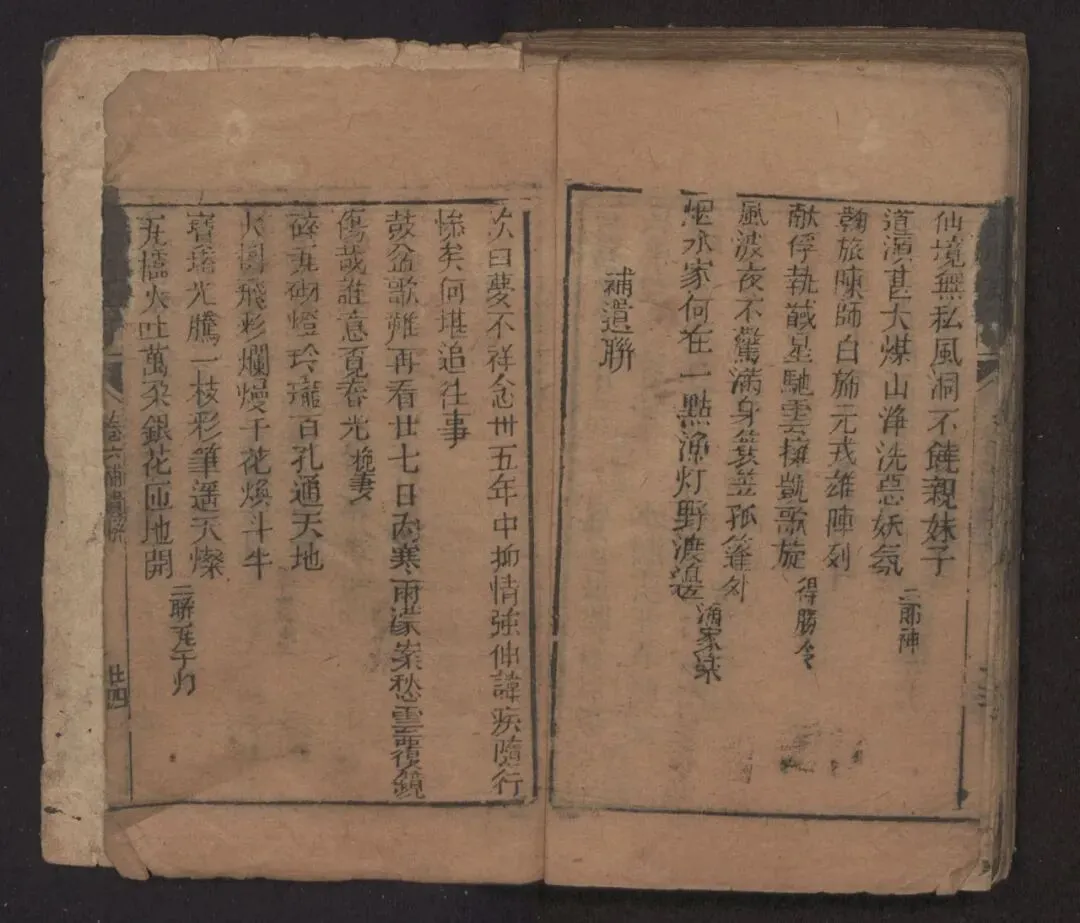 仙境無私風洞不饒親妹子
道源甚大煤山海洗惡妖氛 二郎神
鞠旅陳師白旆元戎雄陣列
献俘執馘星馳雲擁凱歌旋 得勝令
風波夜不驚滿身簑笠孤篷外
烟水家何在一點漁灯野渡邊 漁家樂
補遺聯
次日夢不祥念卅五年中抑情強伸諱疾隨行
慘矣何堪追往事
鼓盆歌难再看廿七日內寒雨濛案愁雲覆鏡
傷哉誰意覓春光 挽妻
碎瓦砌燈玲瓏百孔通天地
火樹飛彩爛熳千花煥斗牛
寶塔光騰一枝彩筆遥天燦
瓦橋火吐萬朶銀花匝地開
三聯瓦子灯
卷六補遺聯
廿四